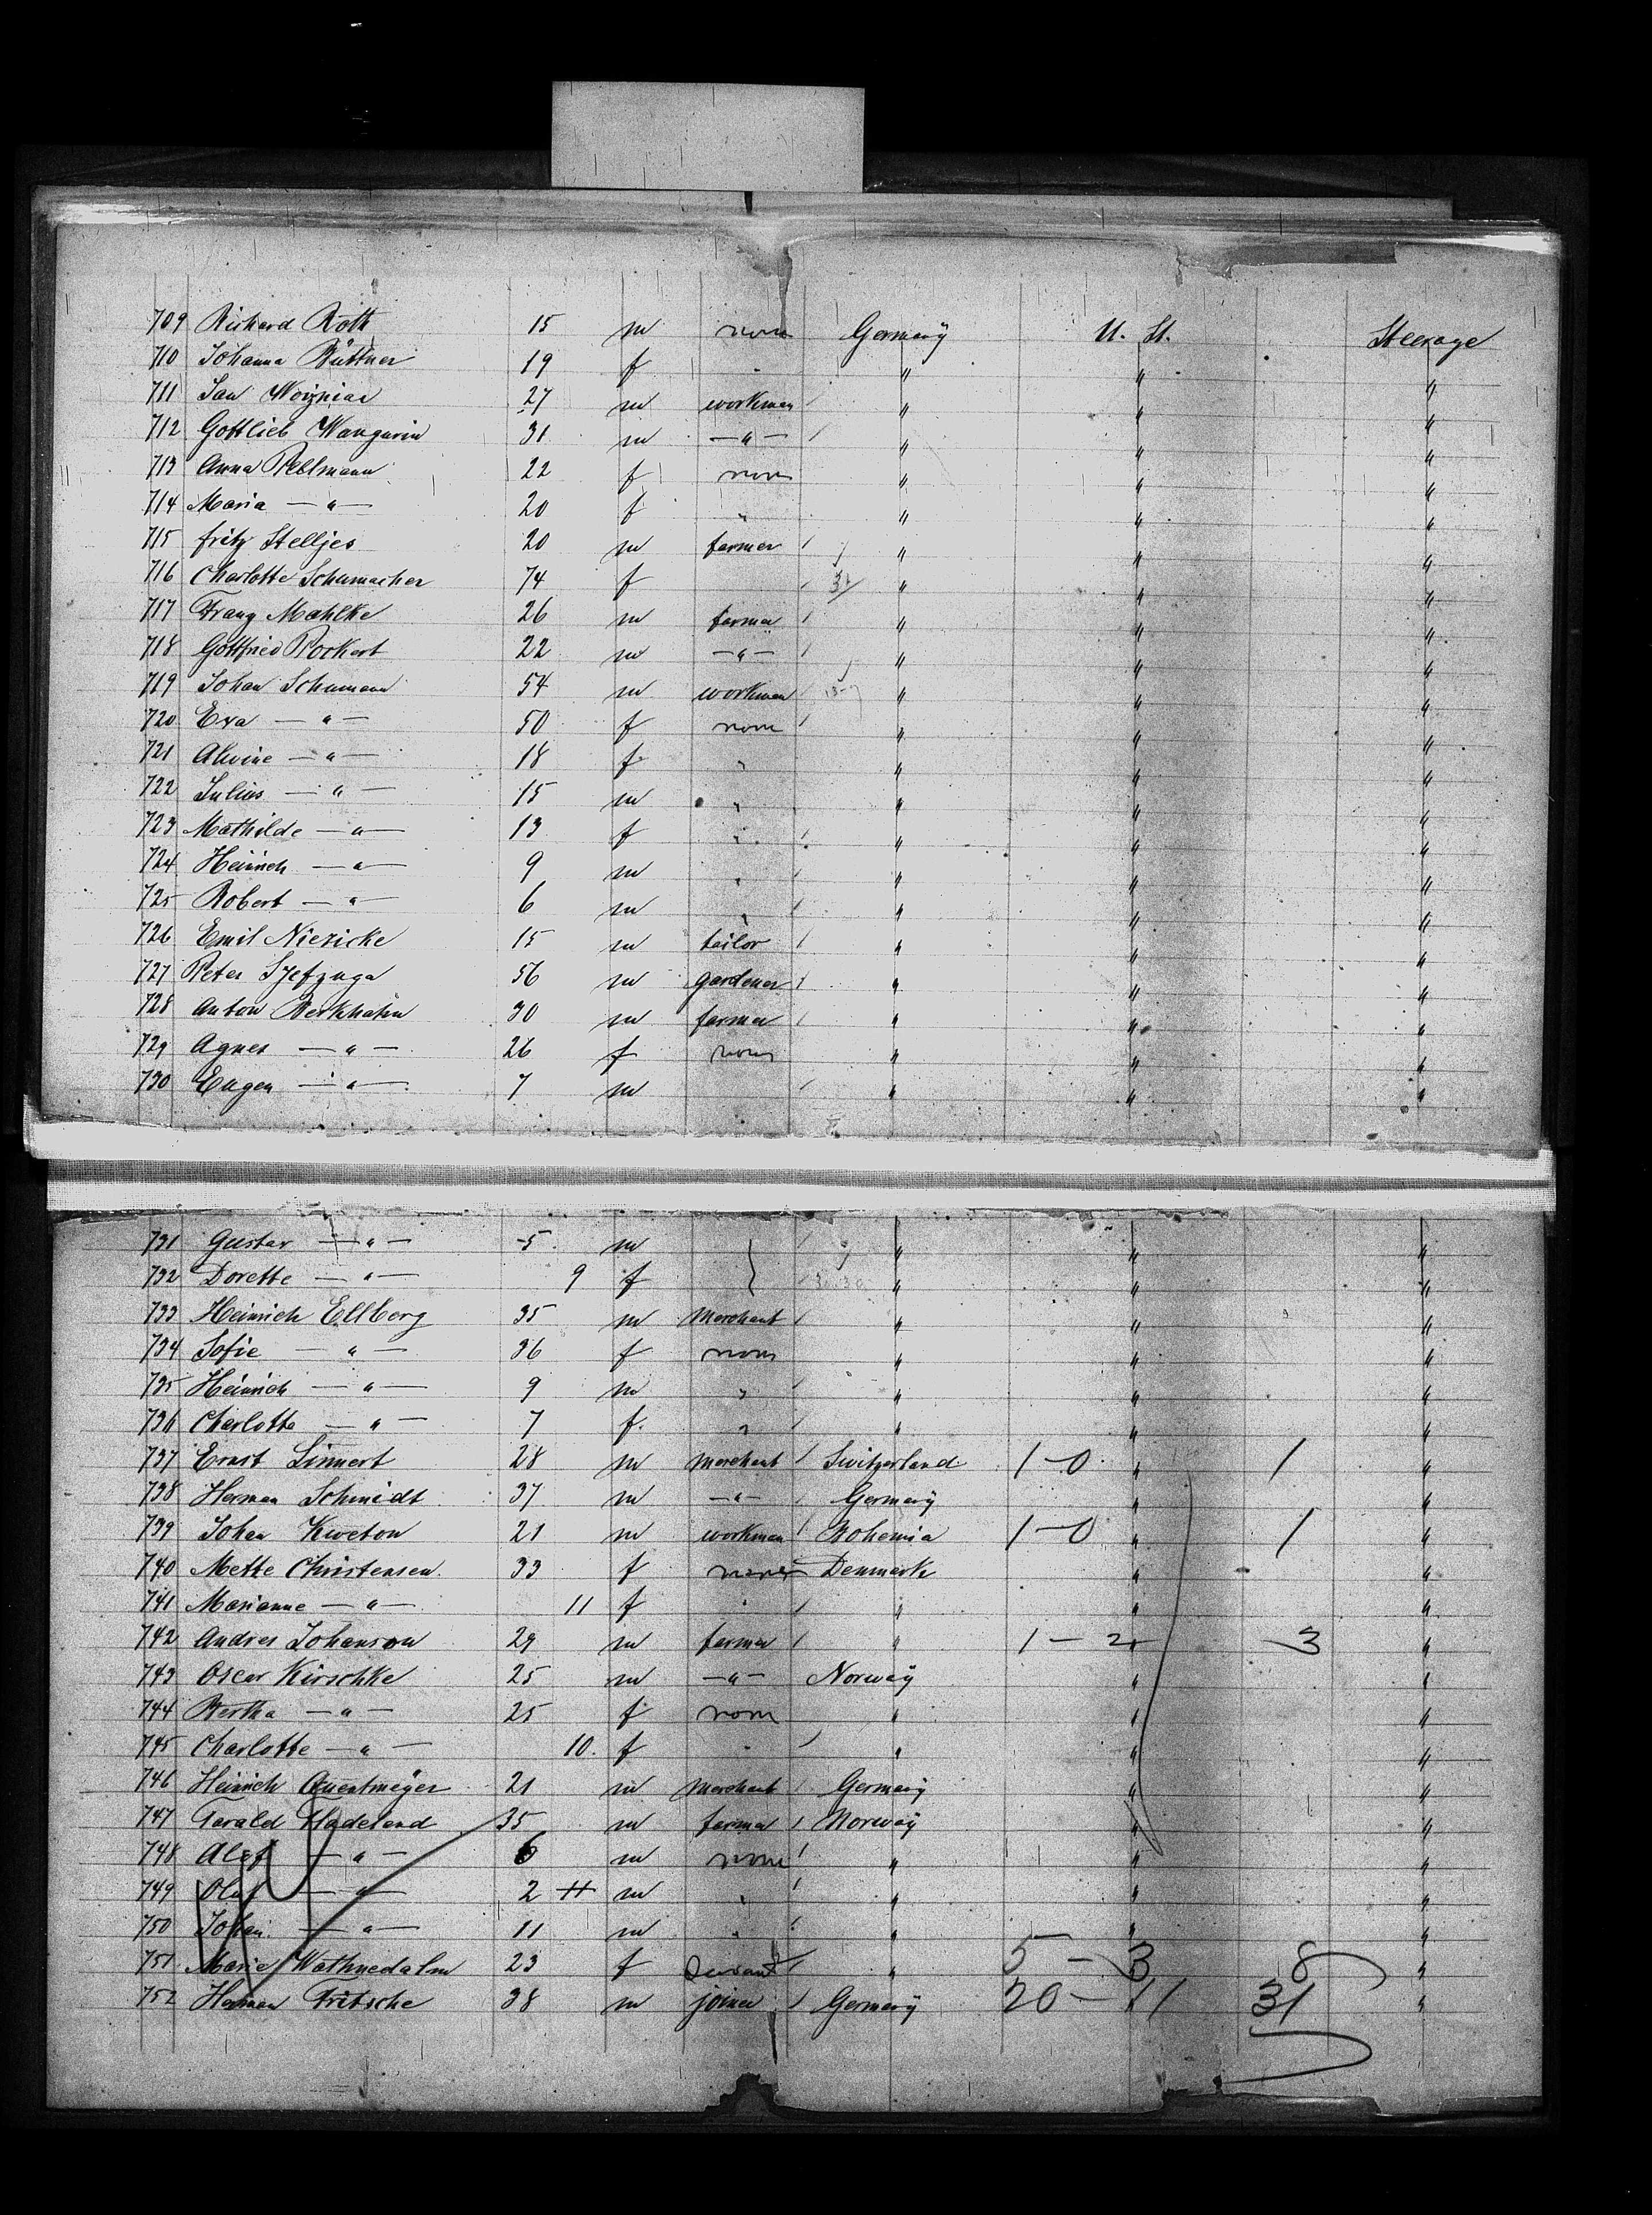 709 Richard Roth 15 m none Germany U. St. Steerage
710 Johanna Büttner 19 f " " " "
711 Jan Woizniac 27 m workman " " "
712 Gottlieb Wangurin 31 m —"— " " "
713 Anna Pellmann 22 f none " " "
714 Maria —"— 20 f " " " "
715 Fritz Stelljes 20 m farmer " " "
716 Charlotte Schumacher 74 f " " "
717 Franz Mahlke 26 m farmer " " "
718 Gottfried Rockert 22 m —"— " " "
719 Johan Schumann 54 m workman " " "
720 Eva —"— 50 f none " " "
721 Alwine —"— 18 f " " " "
722 Julius —"— 15 m " " " "
723 Mathilde —"— 13 f " " " "
724 Heinrich —"— 9 m " " " "
725 Robert —"— 6 m " " " "
726 Emil Niezicke 15 m tailor " " "
727 Peter 56 m gardener " " "
728 Anton Berkhahn 30 m farmer " " "
729 Agnes —"— 26 f none " " "
730 Eugen —"— 7 m " " "
731 Gustav —"— 5 m " " "
732 Dorette —"— 9 f " " "
733 Heinrich Ellberg 35 m Merchant " " "
734 Sofie —"— 36 f none " " "
735 Heinrich —"— 9 m " " " "
736 Charlotte —"— 7 f. " " " "
737 Ernst Linnert 28 m merchant Switzerland 1-0 " 1 "
738 Herman Schmidt 37 m —"— Germany " "
739 Johan Kweton 21 m workman Bohemia 1-0 " 1 "
740 Mette Christensen 33 f none Denmark " "
741 Marianne —"— 11 f " " " "
742 Andres Johanson 29 m farmer " 1-2 " 3 "
743 Oscar Kirschke 25 m —"— Norway " "
744 Bertha —"— 25 f none " " "
745 Charlotte —"— 10. f " " " "
746 Heinrich Quentmeyer 21 m Merchant Germany " "
747 Tarald Hadeland 35 m farmer Norway " "
748 Alef —"— 6 m none " " "
749 Oluf —"— 2 m " " " "
750 Johan —"— 11 m " " " "
751 Marie Wathnedalm 23 f Servant " 5-3 8 "
752 Herman Fritsche 38 m joiner Germany 20-11 31 "